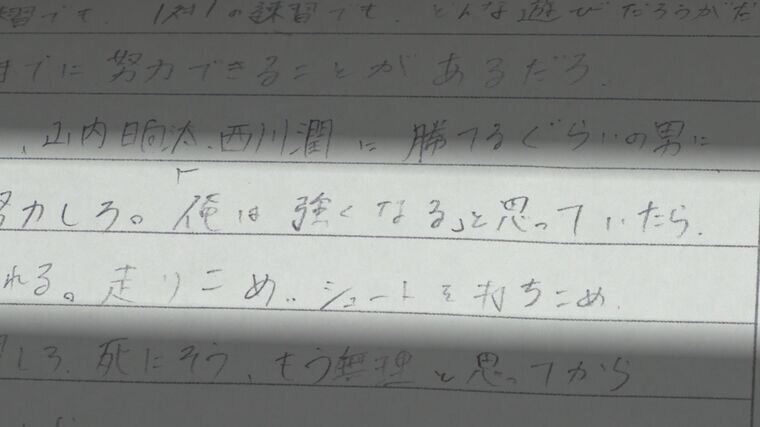 習でも、1対1の練習でも、どんな遊びだろうがだ
までに努力できることがあるだろ。
、山内日向汰、西川潤に勝てるぐらいの男に
努力しろ。「俺は強くなる」と思っていたら、
れる。走りこめ、シュートを打ちこめ、
しろ、死にそう、もう無理と思ってから